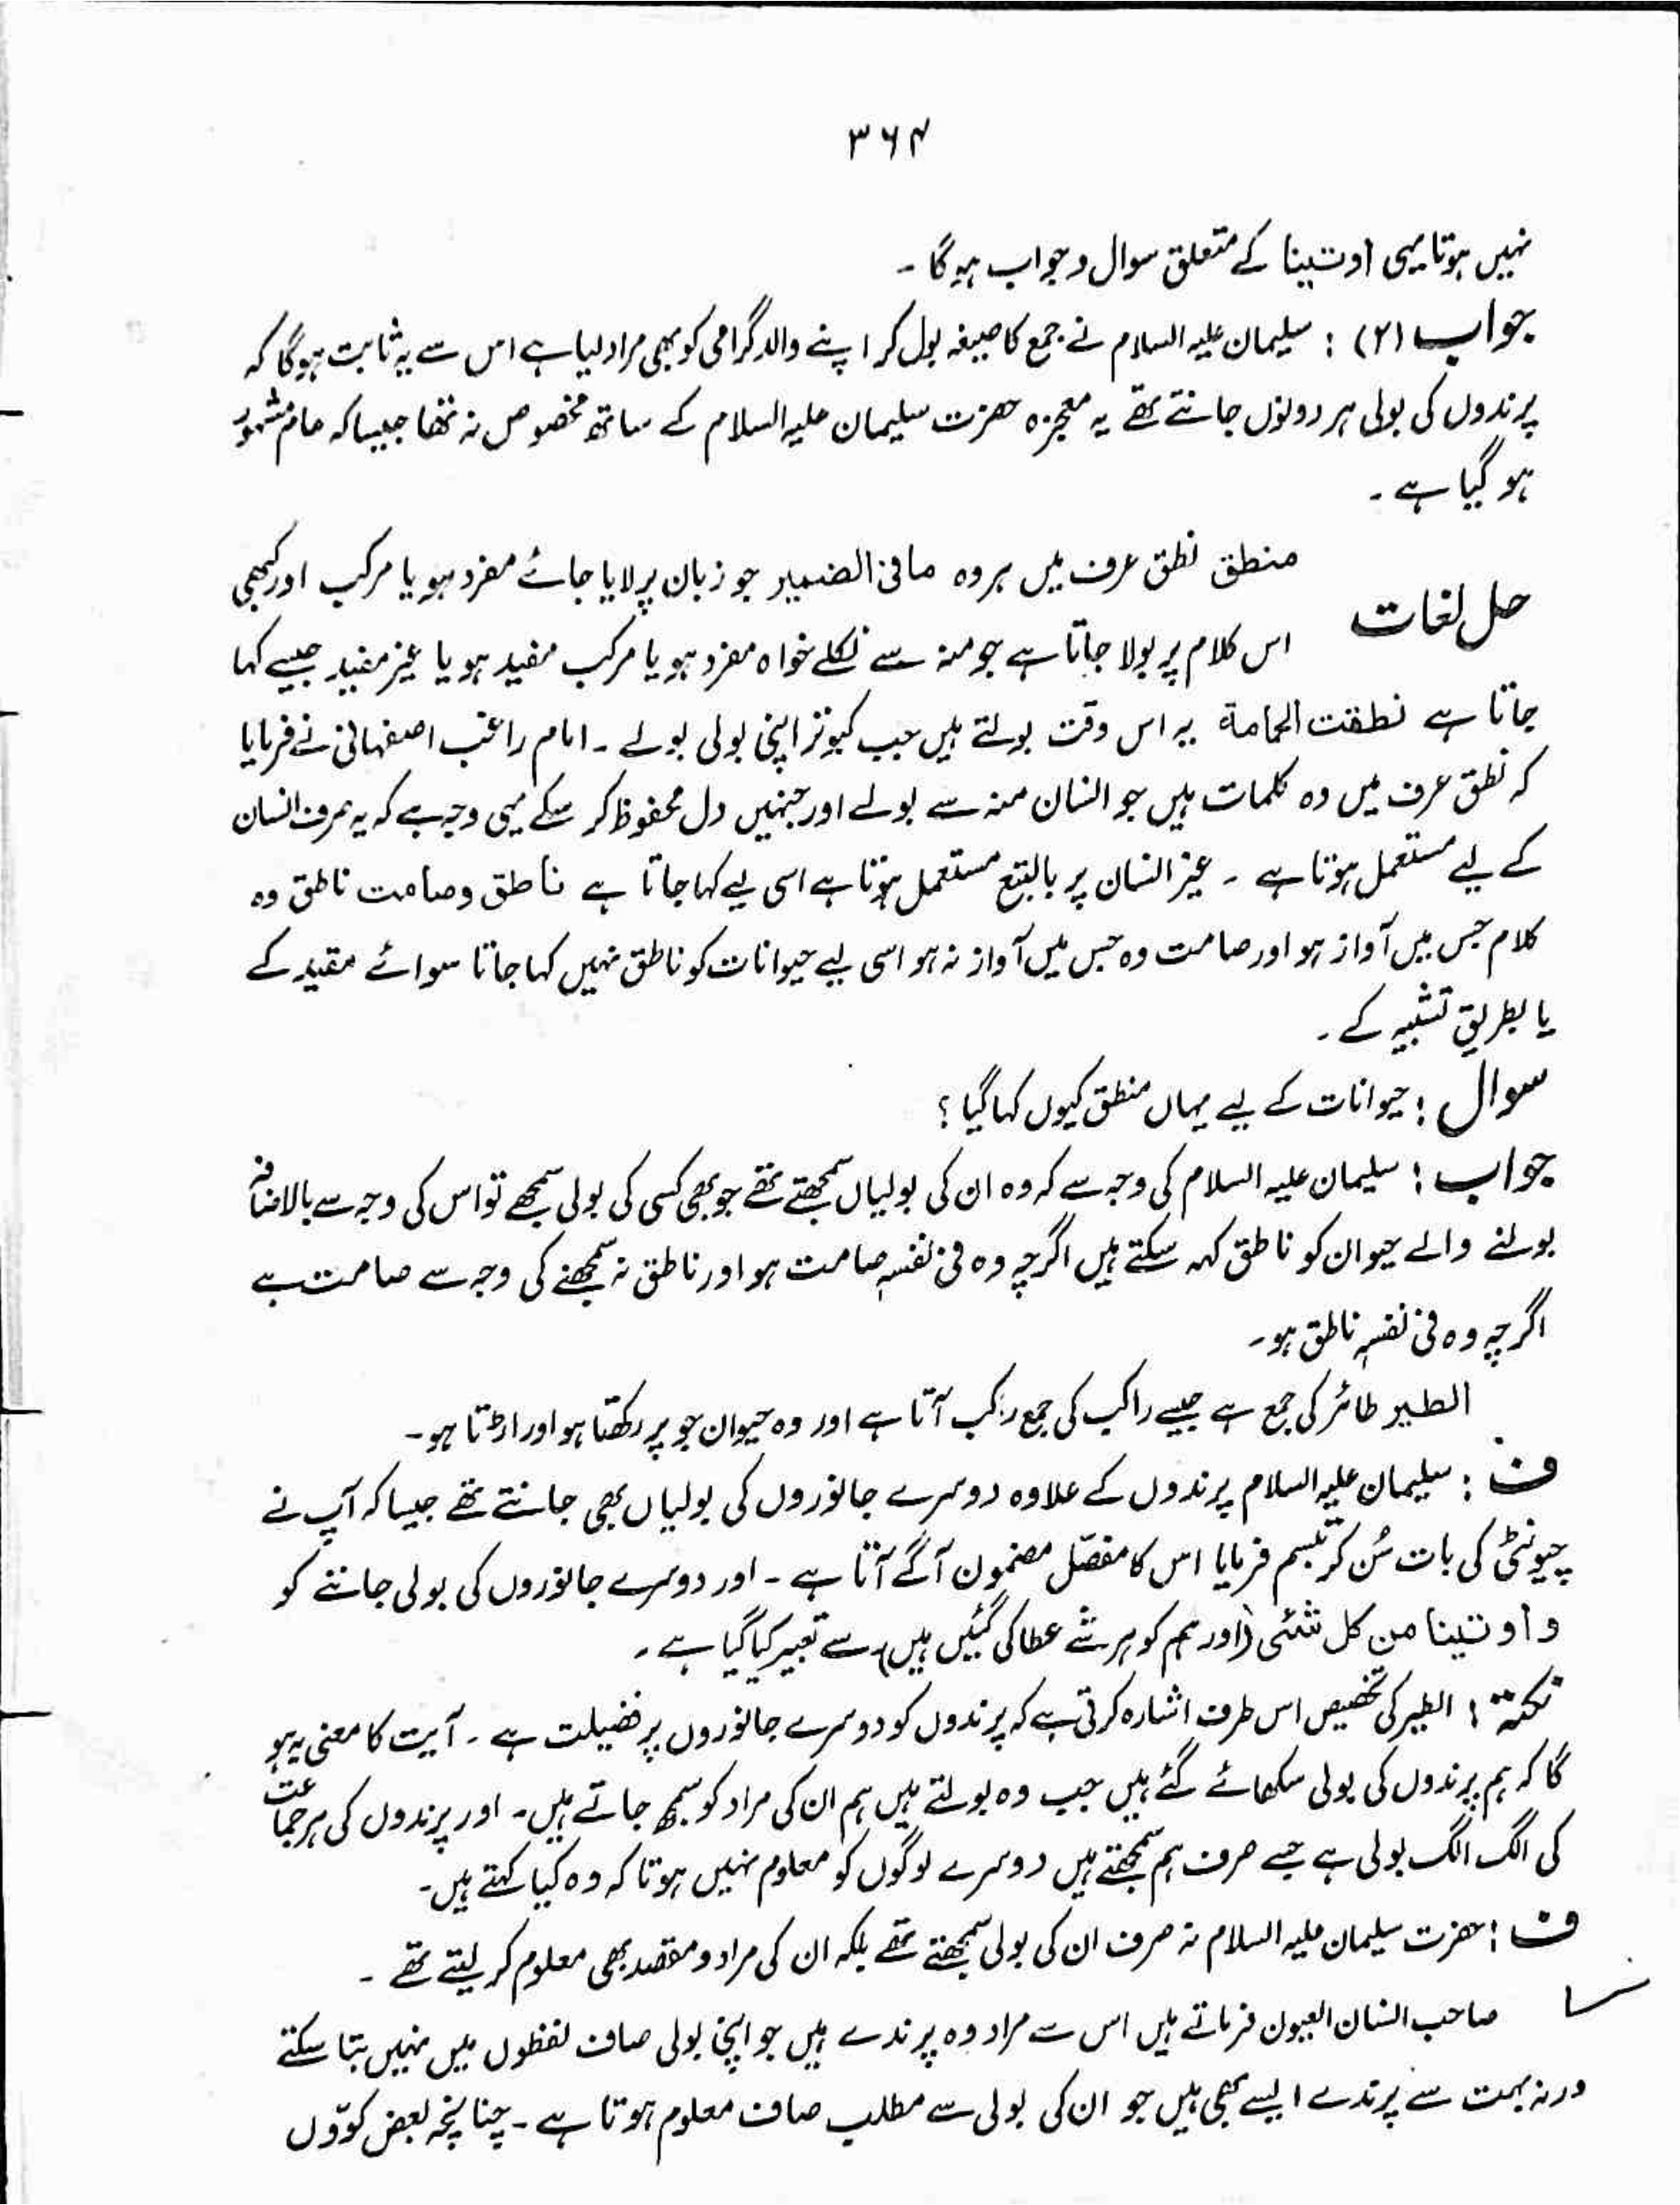 ۳۶۴
نہیں ہوتا یہی اوتینا کے متعلق سوال و جواب ہوگا ۔
جواب (۲) : سلیمان علیہ السلام نے جمع کا صیغہ بول کر اپنے والد گرامی کو بھی مراد لیا ہے اس سے یہ ثابت ہوگا کہ
پرندوں کی بولی ہر دونوں جانتے تھے یہ معجزہ حضرت سلیمان علیہ السلام کے ساتھ مخصوص نہ تھا جیسا کہ عام مشہور
ہو گیا ہے ۔
منطق نطق عرف میں ہر وہ مافی الضمیر جو زبان پر لایا جائے مفرد ہو یا مرکب اور کبھی
حل لغات
اس کلام پر بولا جاتا ہے جو منہ سے نکلے خواہ مفرد ہو یا مرکب مفید ہو یا غیر مفید جیسے کہا
جاتا ہے نطقت الحمامة یہ اس وقت بولتے ہیں جب کبوتر اپنی بولی بولے ۔ امام راغب اصفہانی نے فرمایا
کہ نطق عرف میں وہ کلمات ہیں جو انسان منہ سے بولے اور جنہیں دل محفوظ کر سکے یہی وجہ ہے کہ یہ صرف انسان
کے لیے مستعمل ہوتا ہے ۔ غیر انسان پر بالتبع مستعمل ہوتا ہے اسی لیے کہا جاتا ہے ناطق و صامت ناطق وہ
کلام جس میں آواز ہو اور صامت وہ جس میں آواز نہ ہو اسی لیے حیوانات کو ناطق نہیں کہا جاتا سوائے مقید کے
یا بطریق تشبیہ کے ۔
سوال : حیوانات کے لیے یہاں منطق کیوں کہا گیا ؟
جواب : سلیمان علیہ السلام کی وجہ سے کہ وہ ان کی بولیاں سمجھتے تھے جو بھی کسی کی بولی سمجھے تو اس کی وجہ سے بالاضافہ
بولنے والے حیوان کو ناطق کہہ سکتے ہیں اگرچہ وہ فی نفسہٖ صامت ہو اور ناطق نہ سمجھنے کی وجہ سے صامت ہے
اگرچہ وہ فی نفسہٖ ناطق ہو ۔
الطیر طائر کی جمع ہے جیسے راکب کی جمع رکب آتا ہے اور وہ حیوان جو پر رکھتا ہو اور اڑتا ہو ۔
ف : سلیمان علیہ السلام پرندوں کے علاوہ دوسرے جانوروں کی بولیاں بھی جانتے تھے جیسا کہ آپ نے
چیونٹی کی بات سُن کر تبسم فرمایا اس کا مفصّل مضمون آگے آتا ہے ۔ اور دوسرے جانوروں کی بولی جاننے کو
و اوتینا من کل شئی (اور ہم کو ہر شے عطا کی گئیں ہیں) سے تعبیر کیا گیا ہے ۔
نکتہ : الطیر کی تخصیص اس طرف اشارہ کرتی ہے کہ پرندوں کو دوسرے جانوروں پر فضیلت ہے ۔ آیت کا معنی یہ ہو
گا کہ ہم پرندوں کی بولی سکھائے گئے ہیں جب وہ بولتے ہیں ہم ان کی مراد کو سمجھ جاتے ہیں ۔ اور پرندوں کی ہر جماعت
کی الگ الگ بولی ہے جسے صرف ہم سمجھتے ہیں دوسرے لوگوں کو معلوم نہیں ہوتا کہ وہ کیا کہتے ہیں ۔
ف : حضرت سلیمان علیہ السلام نہ صرف ان کی بولی سمجھتے تھے بلکہ ان کی مراد و مقصد بھی معلوم کر لیتے تھے ۔
صاحب انسان العیون فرماتے ہیں اس سے مراد وہ پرندے ہیں جو اپنی بولی صاف لفظوں میں نہیں بتا سکتے
ورنہ بہت سے پرندے ایسے بھی ہیں جو ان کی بولی سے مطلب صاف معلوم ہوتا ہے ۔ چنانچہ بعض کوّوں